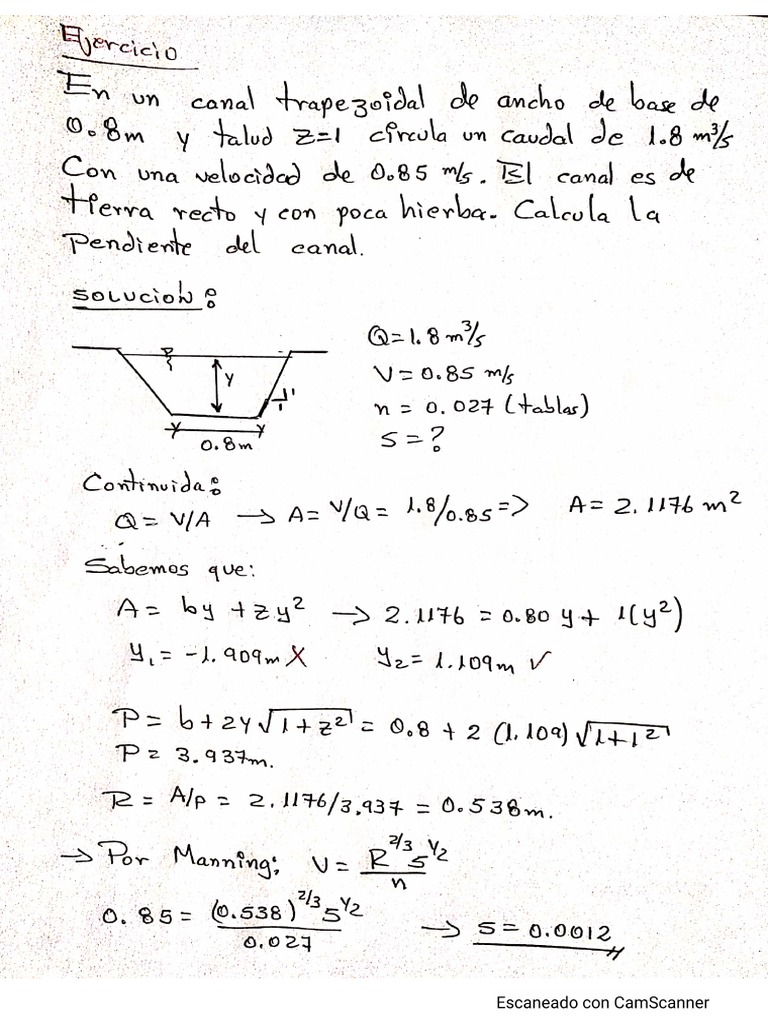 Ejercicio
En un canal trapezoidal de ancho de base de
0.8m y talud z=1 circula un caudal de 1.8 m³/s
Con una velocidad de 0.85 m/s. El canal es de
tierra recto y con poca hierba. Calcula la
pendiente del canal.
SOLUCION:
Q=1.8 m³/s
V=0.85 m/s
n=0.027 (tablas)
S=?
y
1
1
0.8m
Continuida:
Q = V/A → A= V/Q = 1.8/0.85 => A= 2.1176 m²
Sabemos que:
A= by + zy² → 2.1176 = 0.80 y + 1(y²)
y₁ = -1.909m X y₂= 1.109m ✓
P= b+2y√1+z² = 0.8 + 2 (1.109) √1+1²
P= 3.937m.
R = A/P = 2.1176/3.937 = 0.538m.
→ Por Manning: V = R^2/3 S^1/2 / n
0.85 = (0.538)^2/3 S^1/2 / 0.027 → S=0.0012
Escaneado con CamScanner